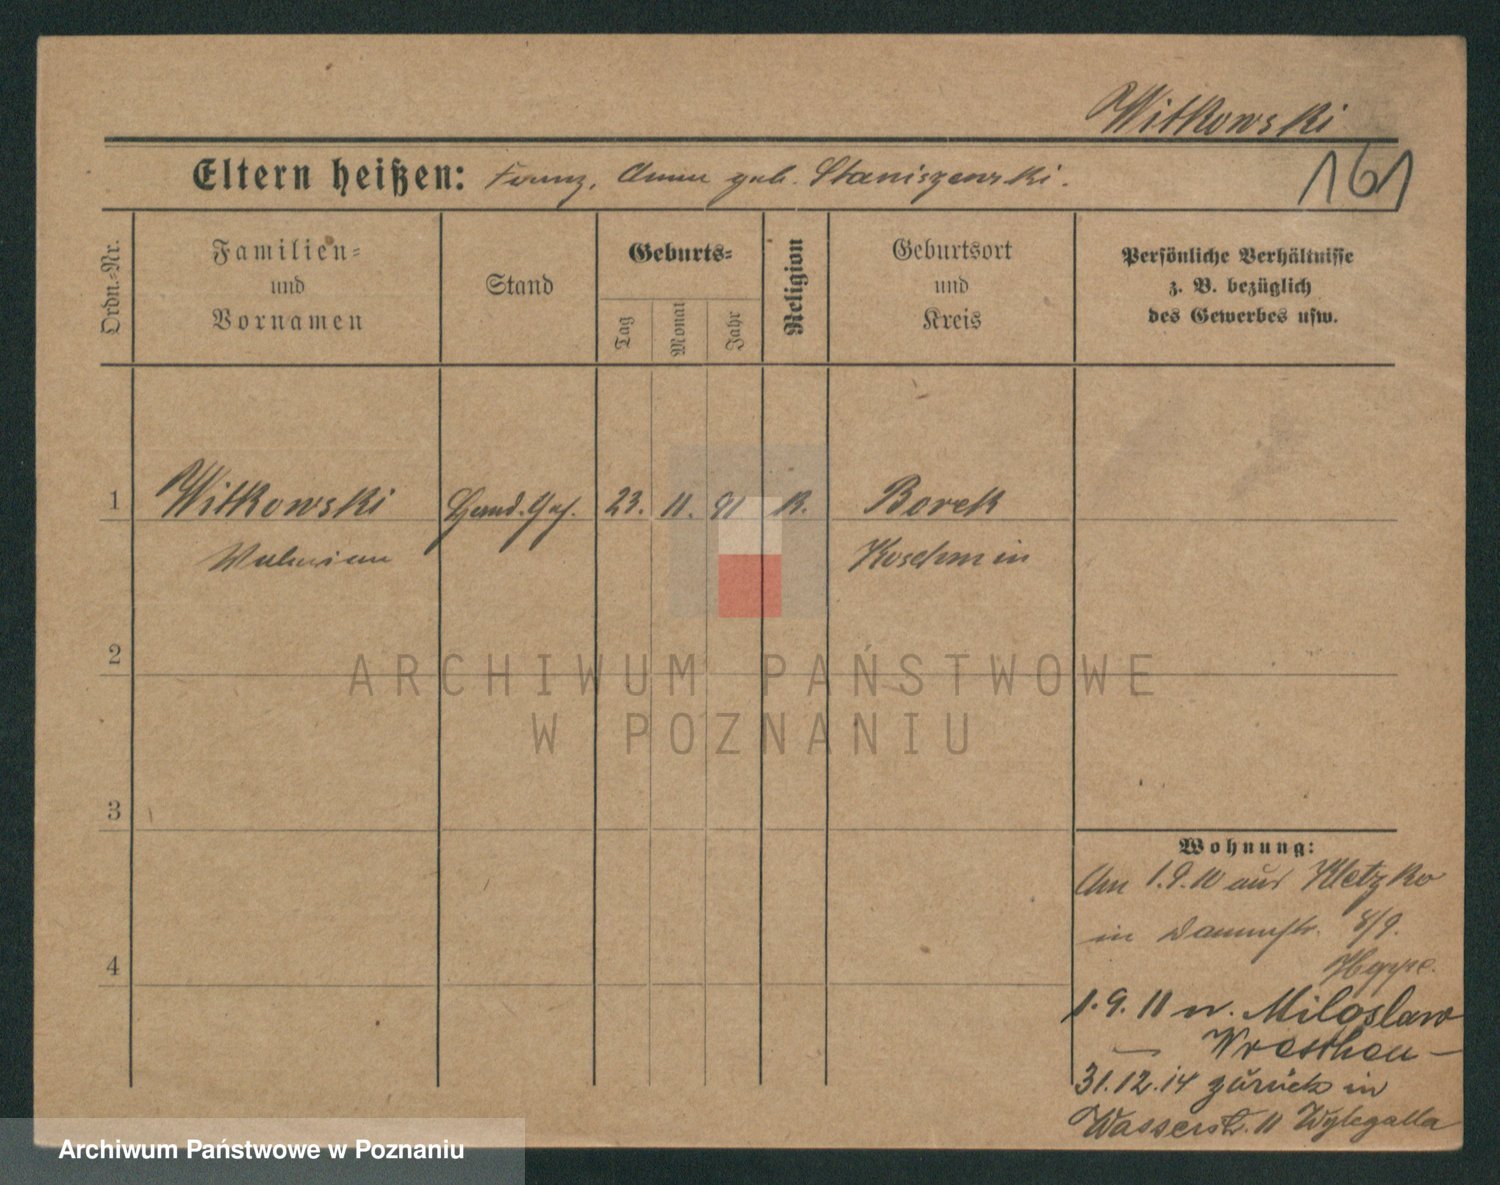 Witkowski
161
Eltern heißen: Franz, Anna geb. Staniszewski.
Ordn.-Nr.
Familien-
und
Vornamen
Stand
Geburts-
Tag
Monat
Jahr
Religion
Geburtsort
und
Kreis
Persönliche Verhältnisse
z. B. bezüglich
des Gewerbes usw.
1 Witkowski Hand. Geh. 23. 11. 91 K. Borek
Koschmin
2
ARCHIWUM PAŃSTWOWE
W POZNANIU
3
Wohnung:
Am 1.9.10 aus Kletzko
in Dammstr. 8/9.
4
1.9.11 n. Miloslaw
— Wreschen —
31.12.14 zurück in
Wasserstr. 11 Wylegalla
Archiwum Państwowe w Poznaniu